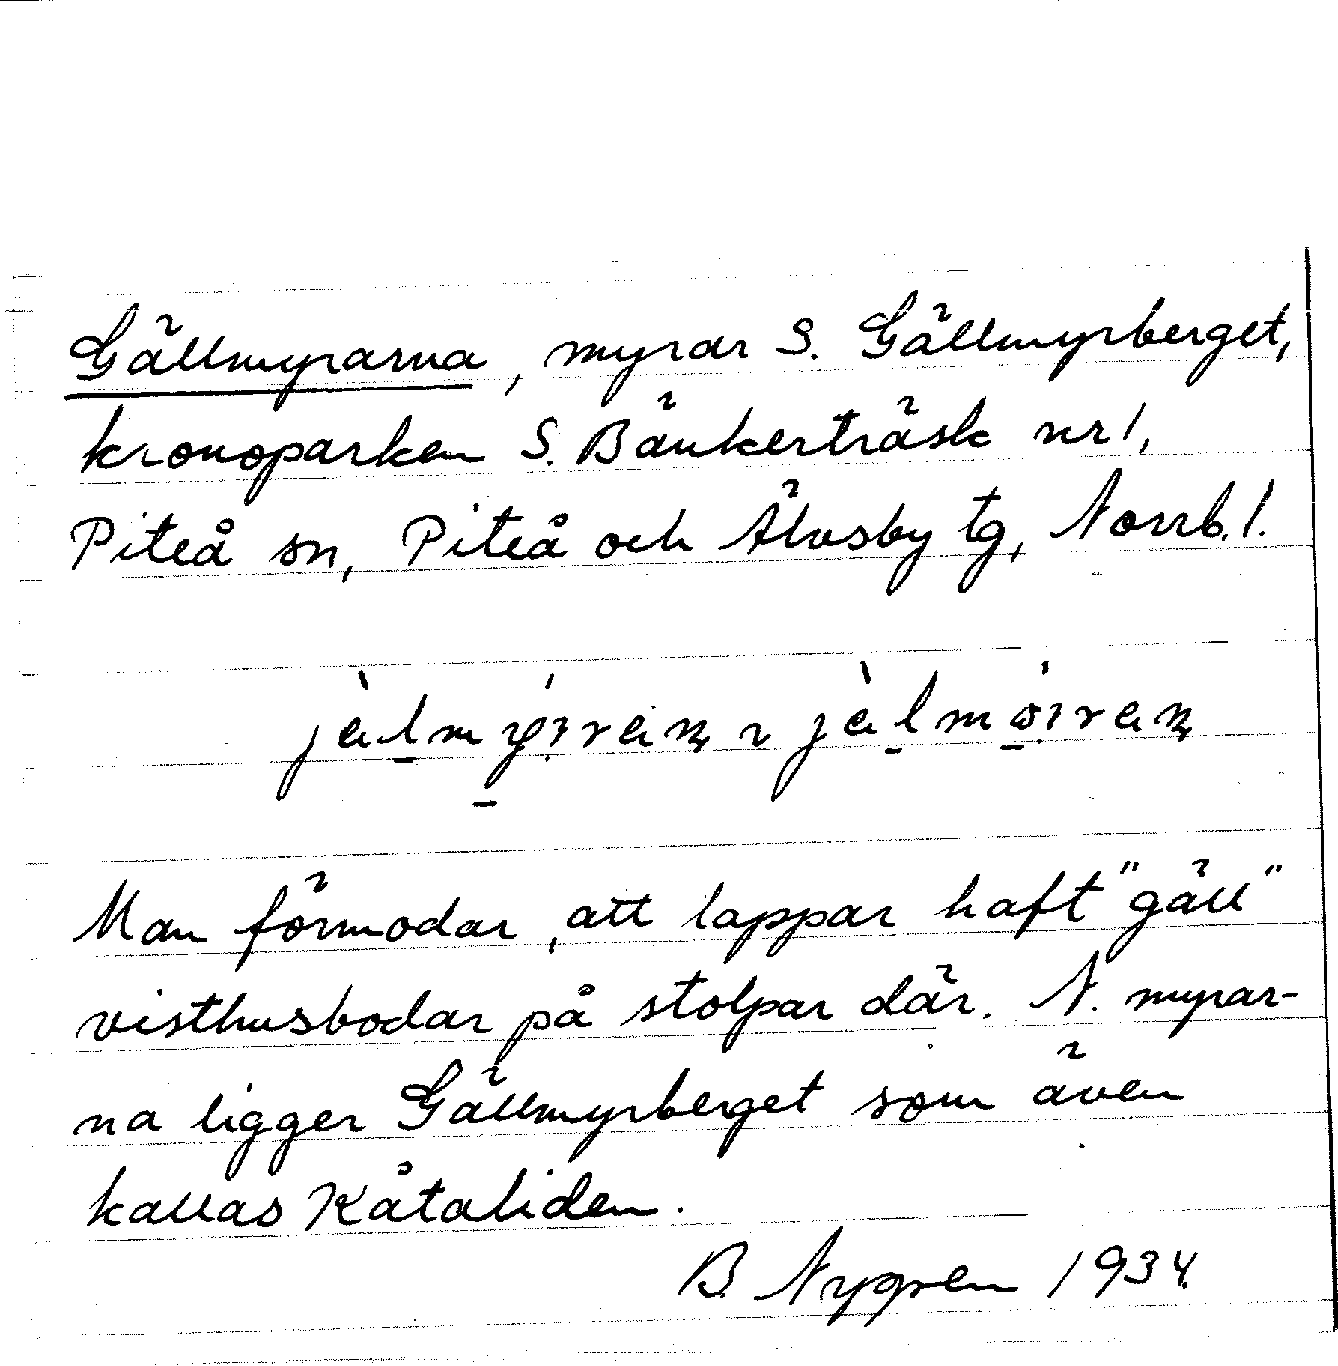 Gällmyrarna, myrar S. Gällmyrberget,
kronoparken S. Bänkerträsk nr 1,
Piteå sn, Piteå och Älvsby tg, Norrb. l.
Man förmodar, att lappar haft "gäll"
visthusbodar på stolpar där. N. myrar-
na ligger Gällmyrberget som även
kallas Kåtaliden.
B. Nygren 1934.